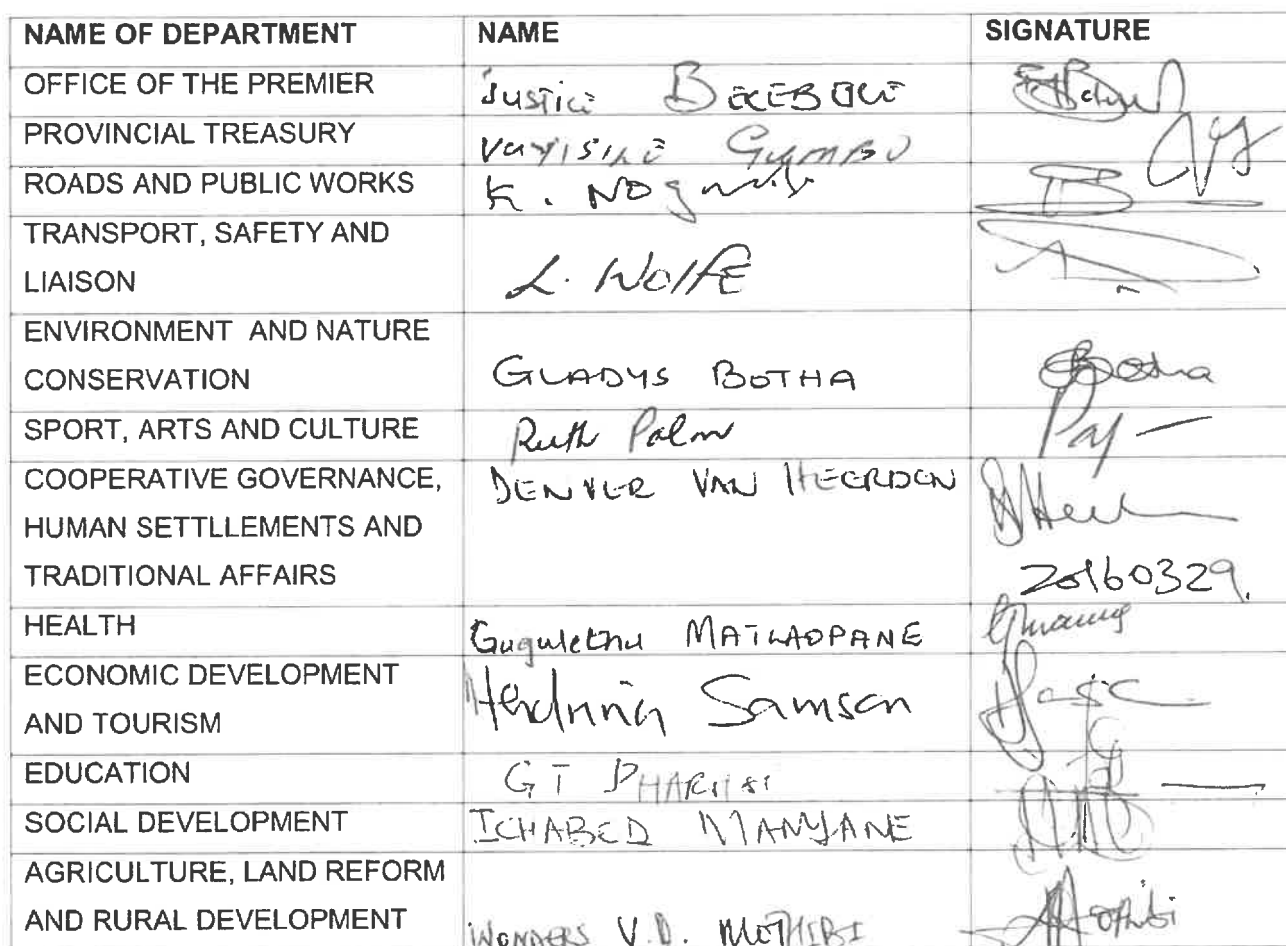 NAME OF DEPARTMENT NAME SIGNATURE
OFFICE OF THE PREMIER Justice BEKEBEKE
PROVINCIAL TREASURY VUYISILE GUMBO
ROADS AND PUBLIC WORKS K. NOGWILI
TRANSPORT, SAFETY AND
LIAISON L. Wolfe
ENVIRONMENT AND NATURE
CONSERVATION GLADYS BOTHA Botha
SPORT, ARTS AND CULTURE Ruth Palm
COOPERATIVE GOVERNANCE, DENVER VAN HEERDEN
HUMAN SETTLLEMENTS AND
TRADITIONAL AFFAIRS 20160329.
HEALTH Gugulethu MATLAOPANE
ECONOMIC DEVELOPMENT
AND TOURISM Samson
EDUCATION GT PHARISI
SOCIAL DEVELOPMENT ICHABED MANYANE
AGRICULTURE, LAND REFORM
AND RURAL DEVELOPMENT WONDERS V.D. MOTHIBI Mothibi